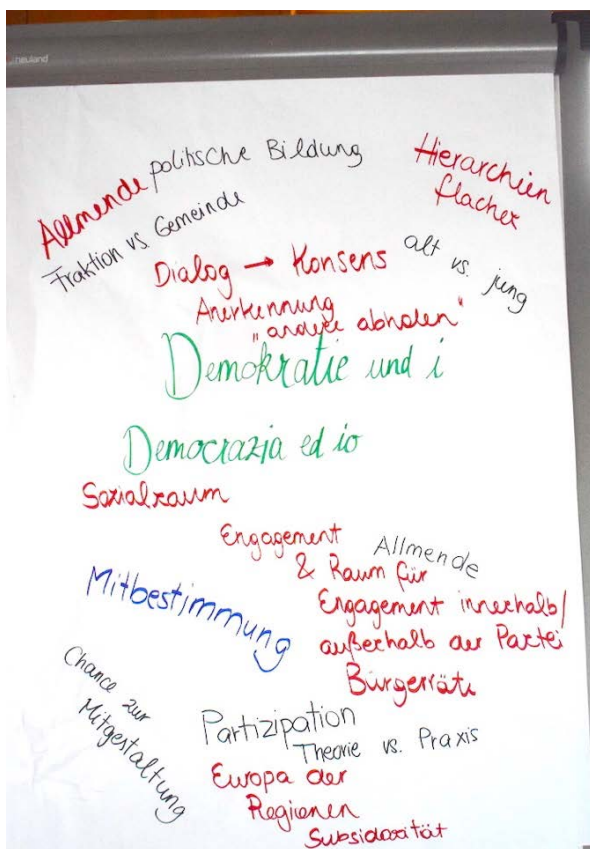 neuland
politische Bildung
Hierarchien
flacher
Allmende
Fraktion vs Gemeinde
Dialog → Konsens
alt vs. jung
Anerkennung
"andere abholen"
Demokratie und i
Democrazia ed io
Sozialraum
Engagement
& Raum für
Engagement innerhalb/
außerhalb der Partei
Allmende
Mitbestimmung
Bürgerräte
Chance zur
Mitgestaltung
Partizipation
Theorie vs. Praxis
Europa der
Regionen
Subsidarität